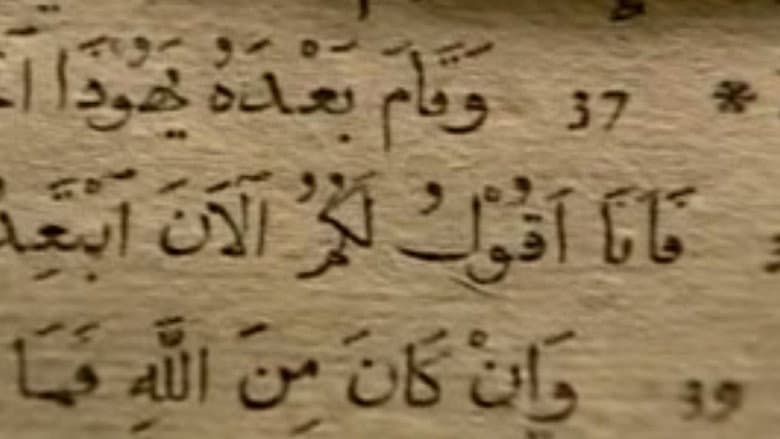 * 37 وَقَامَ بَعْدَهُ يَهُوذَا
فَاَنَا اَقُوْلُ لَكُمُ الْآنَ
39 وَاِنْ كَانَ مِنَ اللَّهِ فَمَا